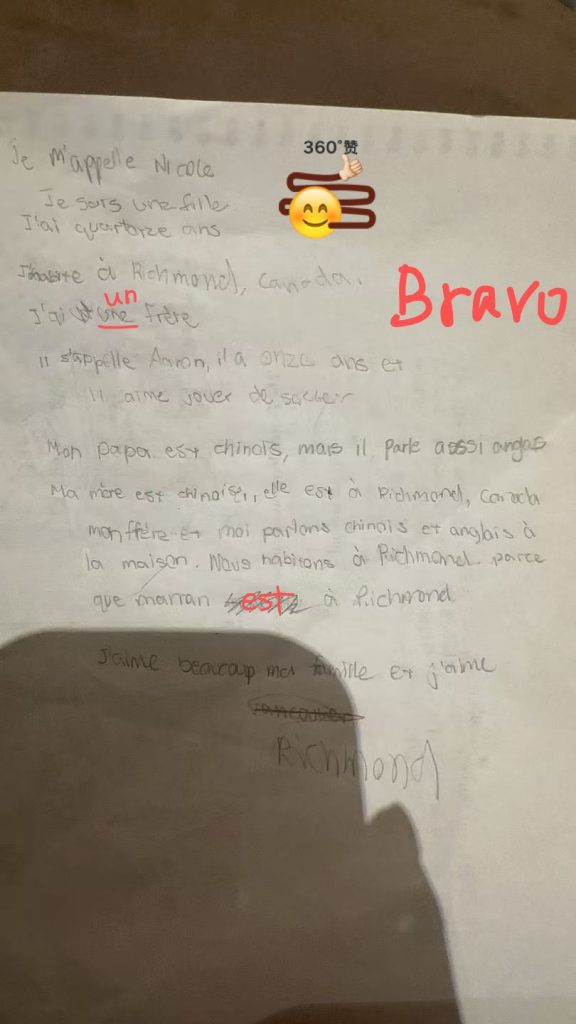 360°赞
Je m'appelle Nicole
Je suis une fille
J'ai quartorze ans
J'habite à Richmond, Canada.
un
Bravo
J'ai une frère
Il s'appelle Aaron, il a onze ans et
Il aime jouer de soccer
Mon papa est chinois, mais il parle aussi anglas
Ma mère est chinoise, elle est à Richmond, Canada
mon frère et moi parlons chinois et anglais à
la maison. Nous habitons à Richmond parce
que maman est à Richmond
J'aime beaucoup ma famille et j'aime
Richmond